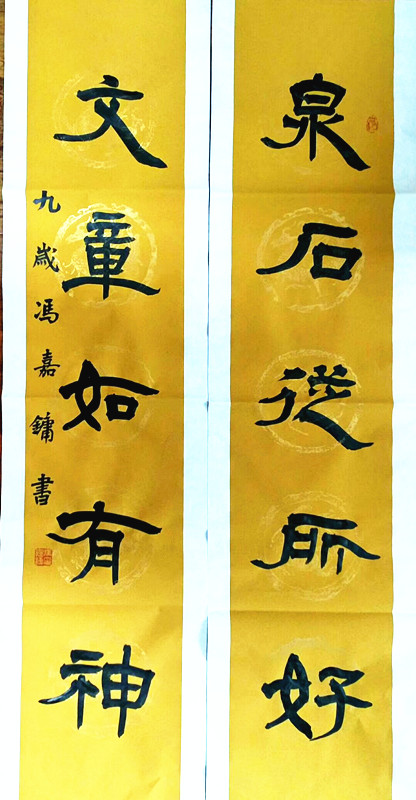 泉石從所好
文章如有神
九歲馮嘉鏞書